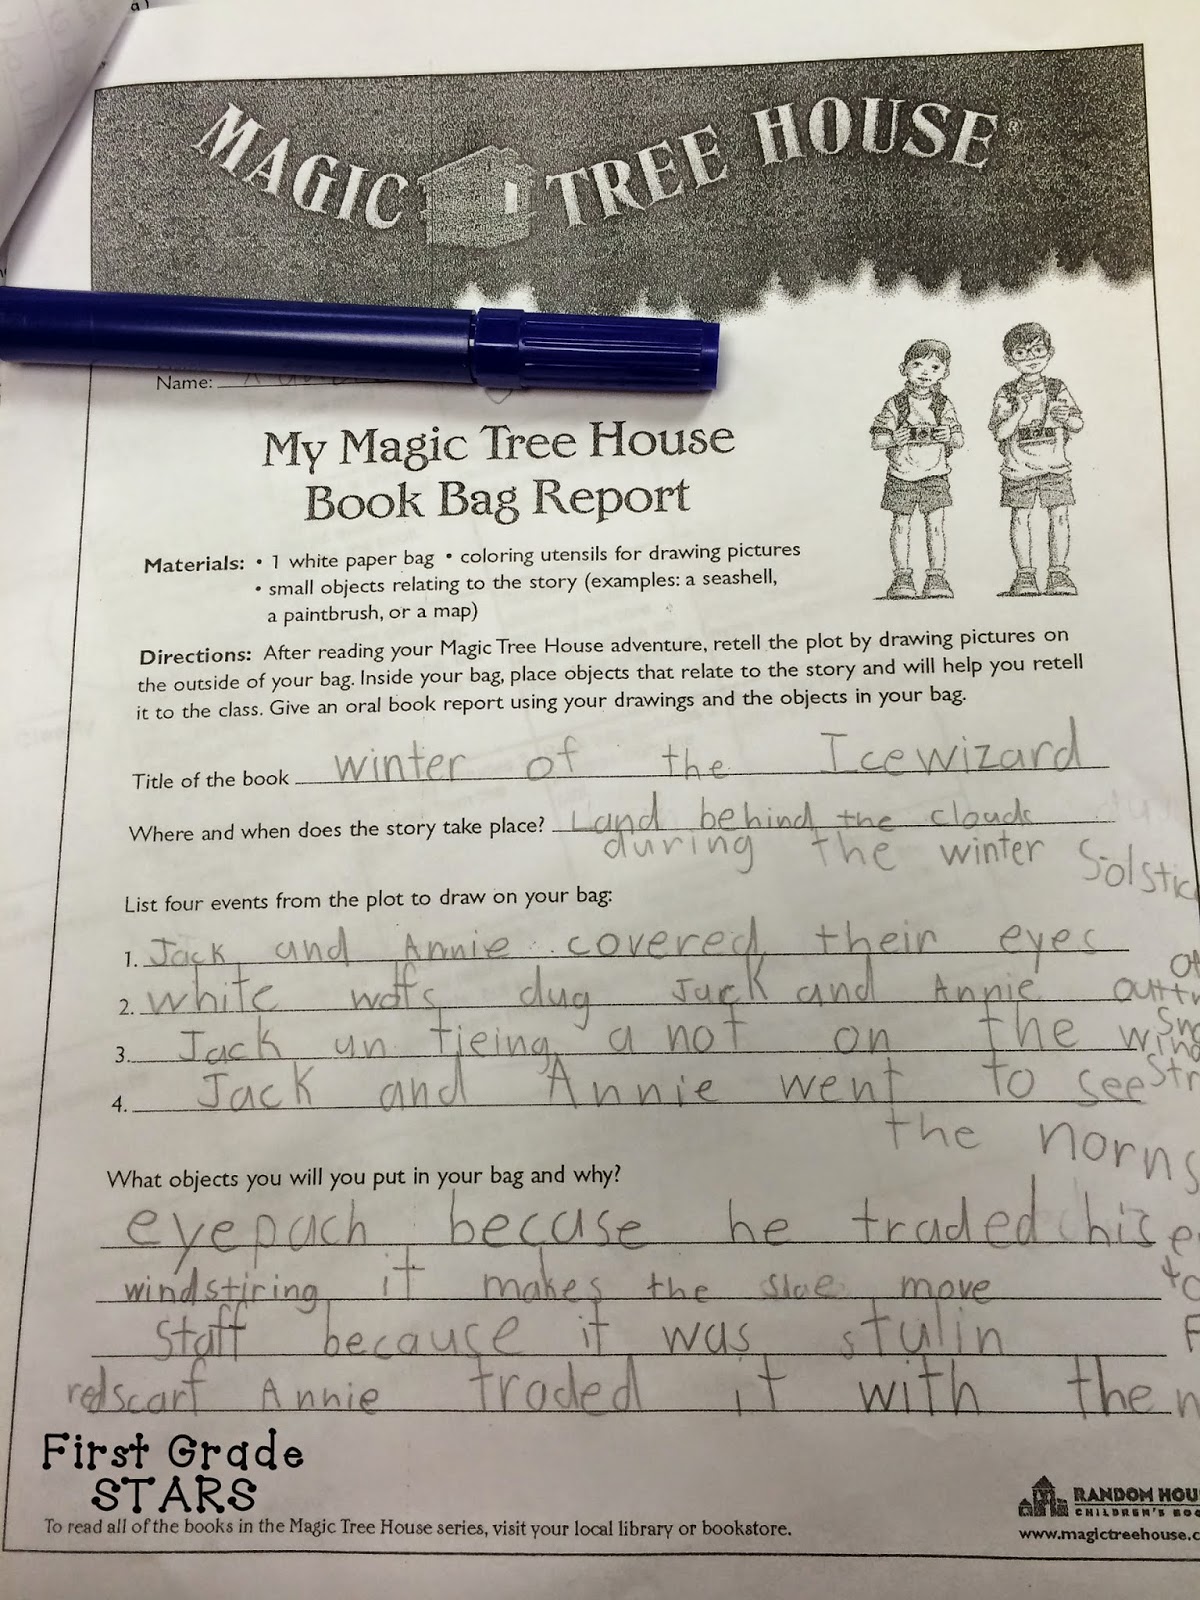 MAGIC TREE HOUSE®
Name:
My Magic Tree House
Book Bag Report
Materials: • 1 white paper bag • coloring utensils for drawing pictures
• small objects relating to the story (examples: a seashell,
a paintbrush, or a map)
Directions: After reading your Magic Tree House adventure, retell the plot by drawing pictures on
the outside of your bag. Inside your bag, place objects that relate to the story and will help you retell
it to the class. Give an oral book report using your drawings and the objects in your bag.
Title of the book winter of the Icewizard
Where and when does the story take place? Land behind the clouds
during the winter Solstic
List four events from the plot to draw on your bag:
1. Jack and Annie covered their eyes
2. white wolfs dug Jack and Annie
3. Jack un tieing a not on the wind
Str
4. Jack and Annie went to see
the norns
What objects you will you put in your bag and why?
eyepach becuse he traded his
windstiring it makes the slae move
Staff because it was stulin
redscarf Annie traded it with the
First Grade
STARS
To read all of the books in the Magic Tree House series, visit your local library or bookstore.
RANDOM HOU
CHILDREN'S BOO
www.magictreehouse.c